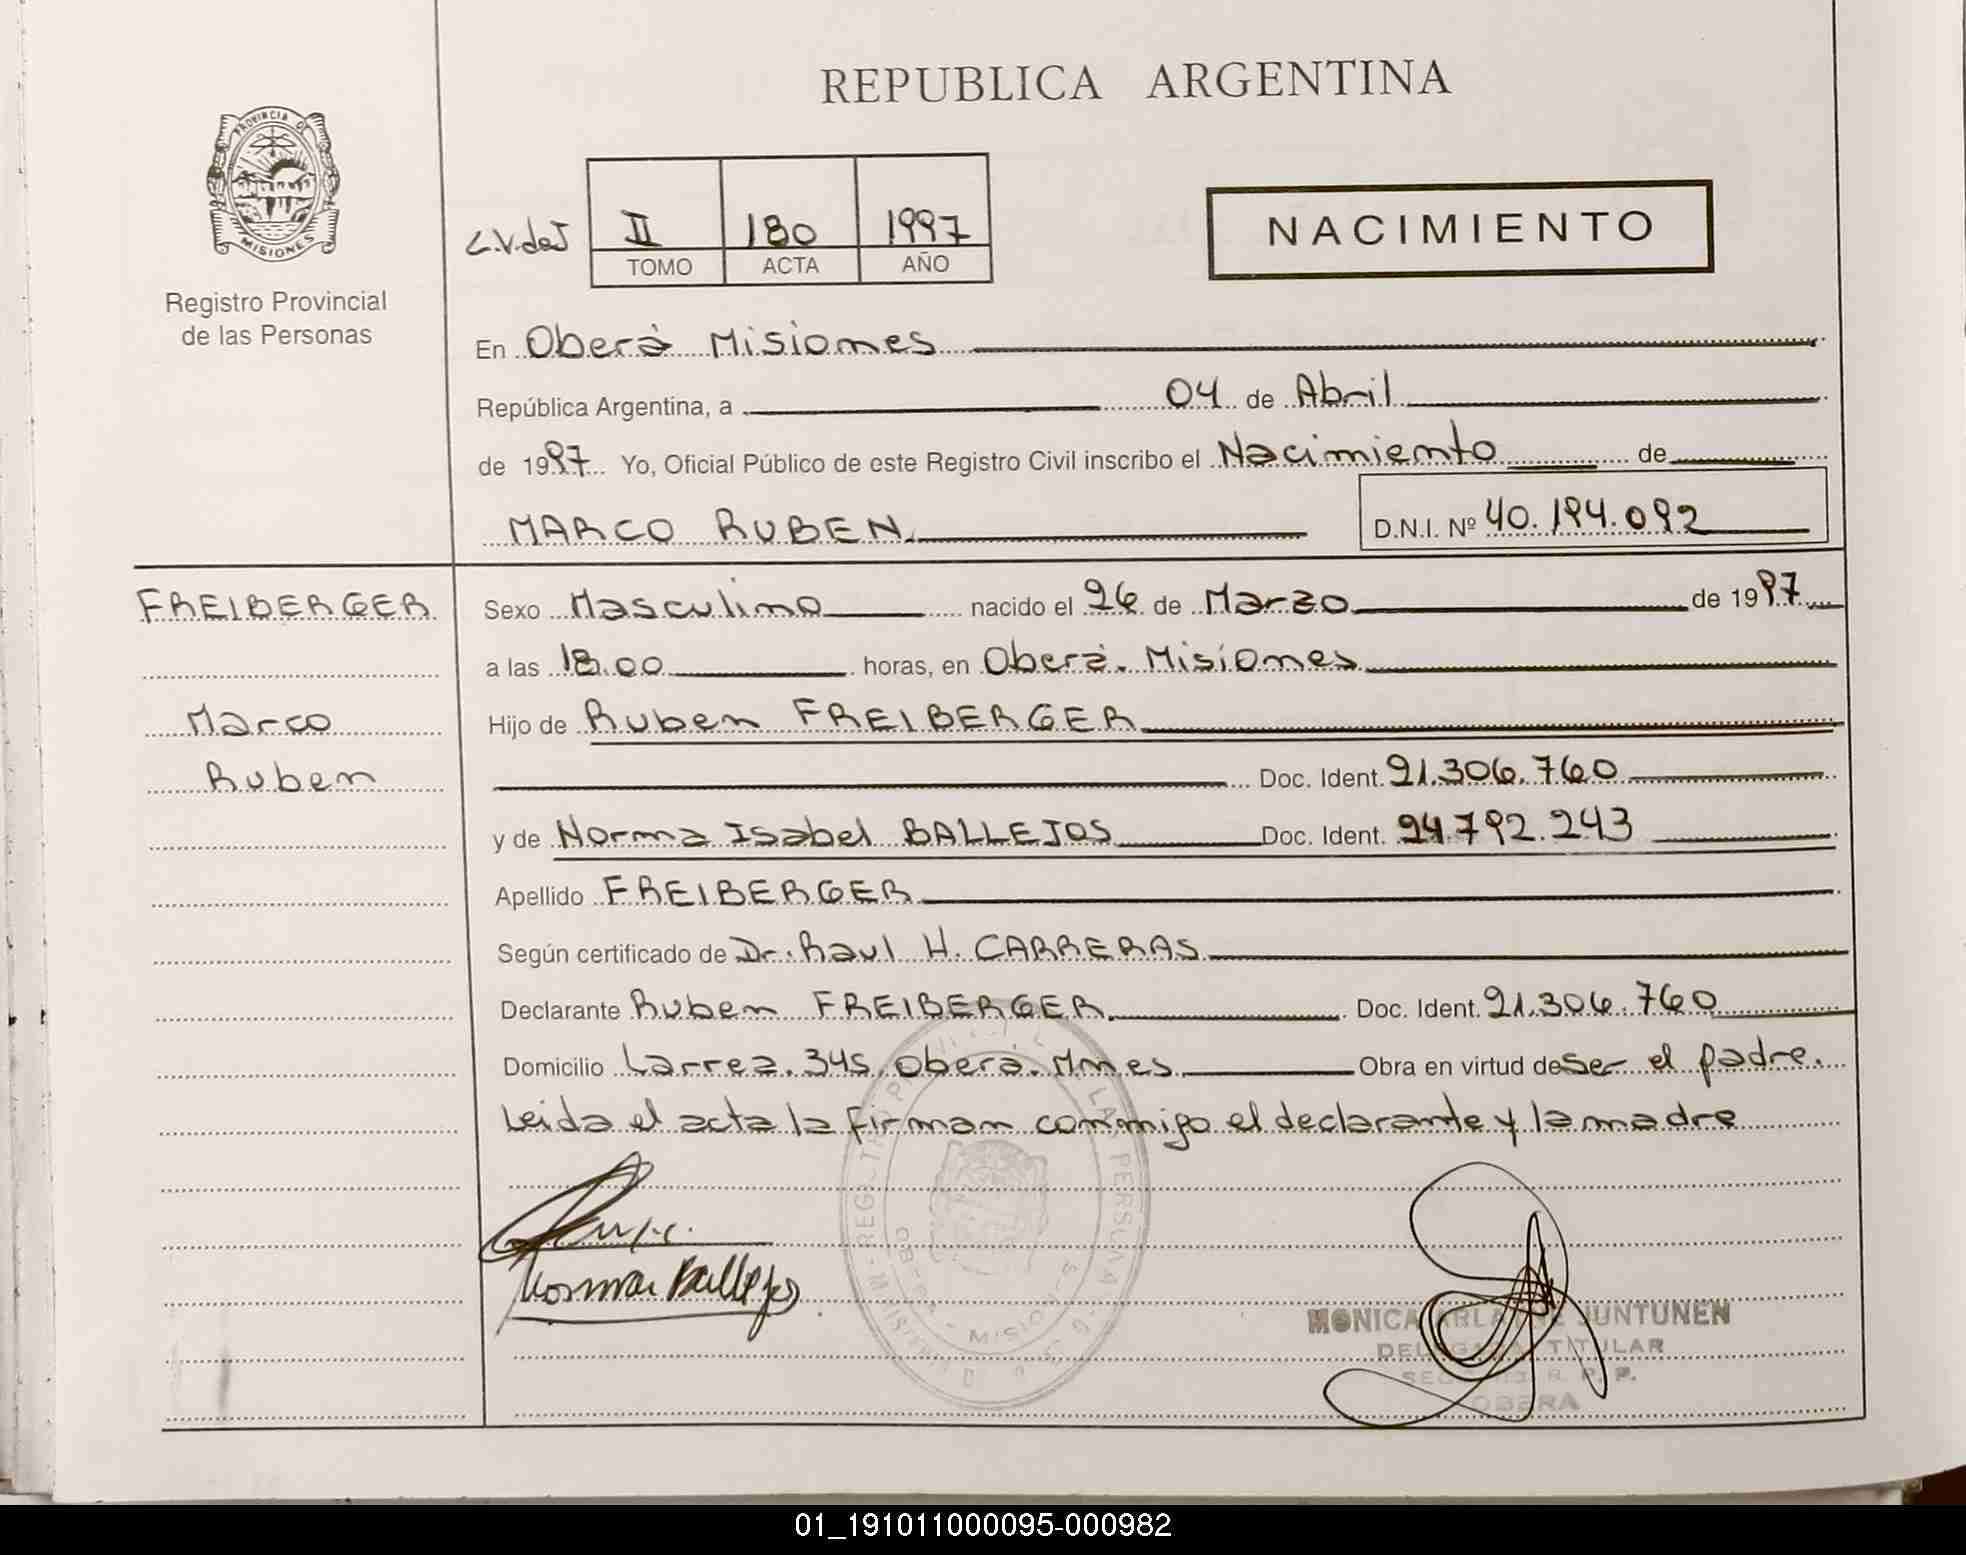 REPUBLICA ARGENTINA
PROVINCIA DE
MISIONES
Registro Provincial
de las Personas
II 180 1997
TOMO ACTA AÑO
NACIMIENTO
En Oberá Misiones
República Argentina, a 04 de Abril
de 1997 Yo, Oficial Público de este Registro Civil inscribo el Nacimiento de
MARCO RUBEN D.N.I. Nº 40.194.092
FREIBERGER
Marco
Ruben
Sexo Masculino nacido el 26 de Marzo de 1997
a las 18.00 horas, en Oberá. Misiones
Hijo de Ruben FREIBERGER
Doc. Ident. 21.306.760
y de Norma Isabel BALLEJOS Doc. Ident. 24.792.243
Apellido FREIBERGER
Según certificado de Dr. Raul H. CARRERAS
Declarante Ruben FREIBERGER Doc. Ident. 21.306.760
Domicilio Larrea. 345. Oberá. Mnes Obra en virtud de Ser el padre.
Leida el acta la firman conmigo el declarante y la madre
Norma Ballejos
MONICA JUNTUNEN
DELEGADA TITULAR
R. P. P.
OBERA
01_191011000095-000982